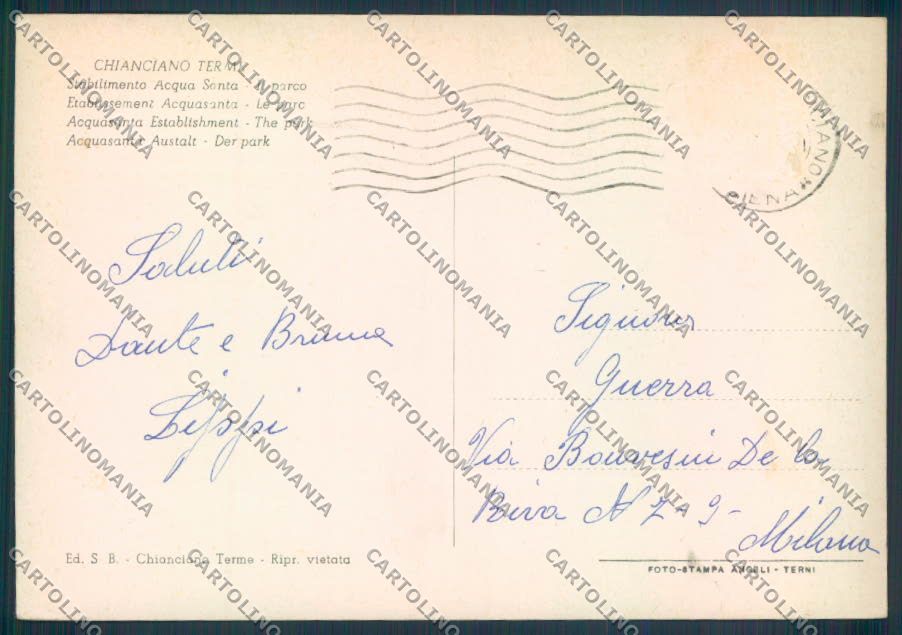 CHIANCIANO TERME
Stabilimento Acqua Santa - Il parco
Etablissement Acquasanta - Le parc
Acquasanta Establishment - The park
Acquasanta Austalt - Der park
SIENA
Saluti
Dante e Bruna
Lippi
Signora
Guerra
Via Bonvesin De la
Riva N 7-9-
Milano
Ed. S. B. - Chianciano Terme - Ripr. vietata
FOTO-STAMPA ANGELI - TERNI
CARTOLINOMANIA